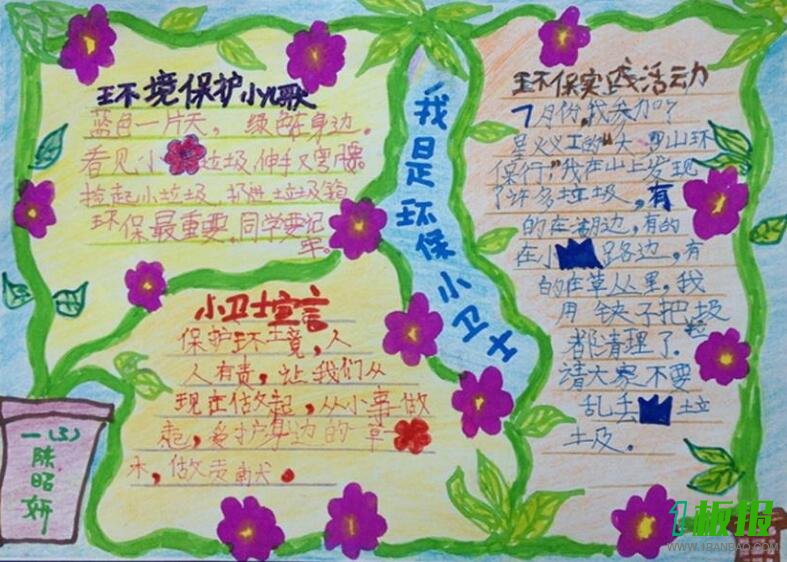 环境保护小儿歌
蓝色一片天，绿色在身边。
看见小垃圾，伸手又弯腰
捡起小垃圾，扔进垃圾箱
环保最重要，同学要记
牢。
我是环保小卫士
小卫士宣言
保护环境，人
人有责，让我们从
现在做起，从小事做
起，爱护身边的一草
木，做
环保实践活动
7月份，我参加
义工的"大罗山环
保行"，我在山上发现
了许多垃圾，有
的在湖边，有的
在小路边，有
的在草丛里，我
用铁子把垃圾
都清理了。
请大家不要
乱丢垃
圾。
一(3)
陈昭妍
板报
WWW.1BANBAO.COM